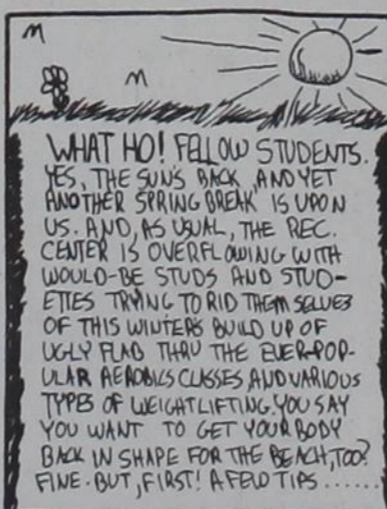 WHAT HO! FELLOW STUDENTS.
YES, THE SUN'S BACK, AND YET
ANOTHER SPRING BREAK IS UPON
US. AND, AS USUAL, THE REC.
CENTER IS OVERFLOWING WITH
WOULD-BE STUDS AND STUD-
ETTES TRYING TO RID THEMSELVES
OF THIS WINTERS BUILD UP OF
UGLY FLAB THRU THE EVER-POP-
ULAR AEROBICS CLASSES AND VARIOUS
TYPES OF WEIGHTLIFTING. YOU SAY
YOU WANT TO GET YOUR BODY
BACK IN SHAPE FOR THE BEACH, TOO?
FINE. BUT, FIRST! A FEW TIPS......